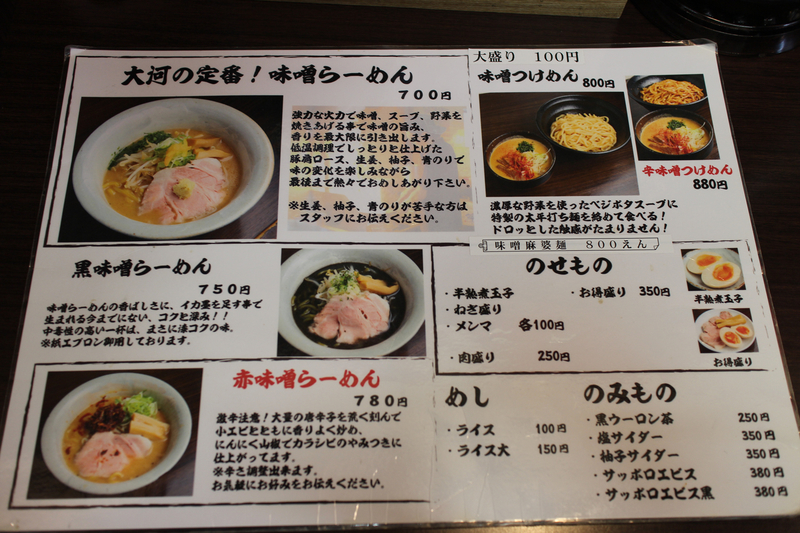 大河の定番！味噌らーめん
700円
強力な火力で味噌、スープ、野菜を
焼きあげる事で味噌の旨み、
香りを最大限に引き出します。
低温調理でしっとりと仕上げた
豚肩ロース、生姜、柚子、青のりで
味の変化を楽しみながら
最後まで熱々でおめしあがり下さい。
※生姜、柚子、青のりが苦手な方は
スタッフにお伝えください。
大盛り 100円
味噌つけめん 800円
辛味噌つけめん
880円
濃厚な野菜を使ったベジポタスープに
特製の太平打ち麺を絡めて食べる！
ドロッとした触感がたまりません！
味噌麻婆麺 800えん
黒味噌らーめん
750円
味噌らーめんの香ばしさに、イカ墨を足す事で
生まれる今までにない、コクと深み！！
中毒性の高い一杯は、まさに漆コクの味。
※紙エプロン御用しております。
のせもの
・半熟煮玉子
・お得盛り 350円
・ねぎ盛り
・メンマ 各100円
・肉盛り 250円
半熟煮玉子
お得盛り
赤味噌らーめん
780円
激辛注意！大量の唐辛子を荒く刻んで
小エビとともに香りよく炒め、
にんにく山椒でカラシビのやみつきに
仕上がってます。
※辛さ調整出来ます。
お気軽にお好みをお伝えください。
めし
・ライス 100円
・ライス大 150円
のみもの
・黒ウーロン茶 250円
・塩サイダー 350円
・柚子サイダー 350円
・サッポロエビス 380円
・サッポロエビス黒 380円